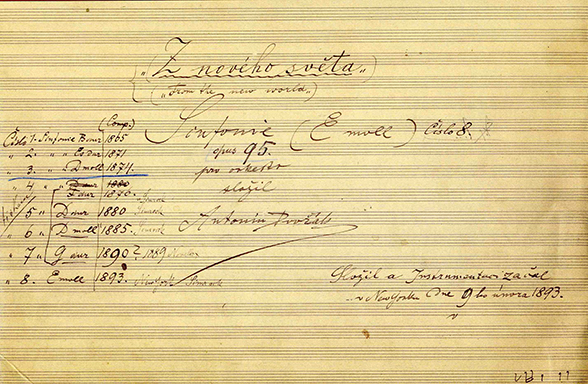 "Z nového světa"
("From the new world")
Sinfonie (E moll) Číslo 8.
opus 95.
pro orkestr
složil
Antonín Dvořák
(Comp.)
Číslo 1. Sinfonie B dur 1865
" 2. " " Es dur 1871
" 3. " " D moll 1874.
" 4 " F dur 1870.
" 5 " D dur 1880
" 6 " D moll 1885.
" 7 " G dur 1890? 1889
" 8. E moll 1893. New York
Složil a Instrumentace začal
v New Yorku Dne 9ho února 1893.